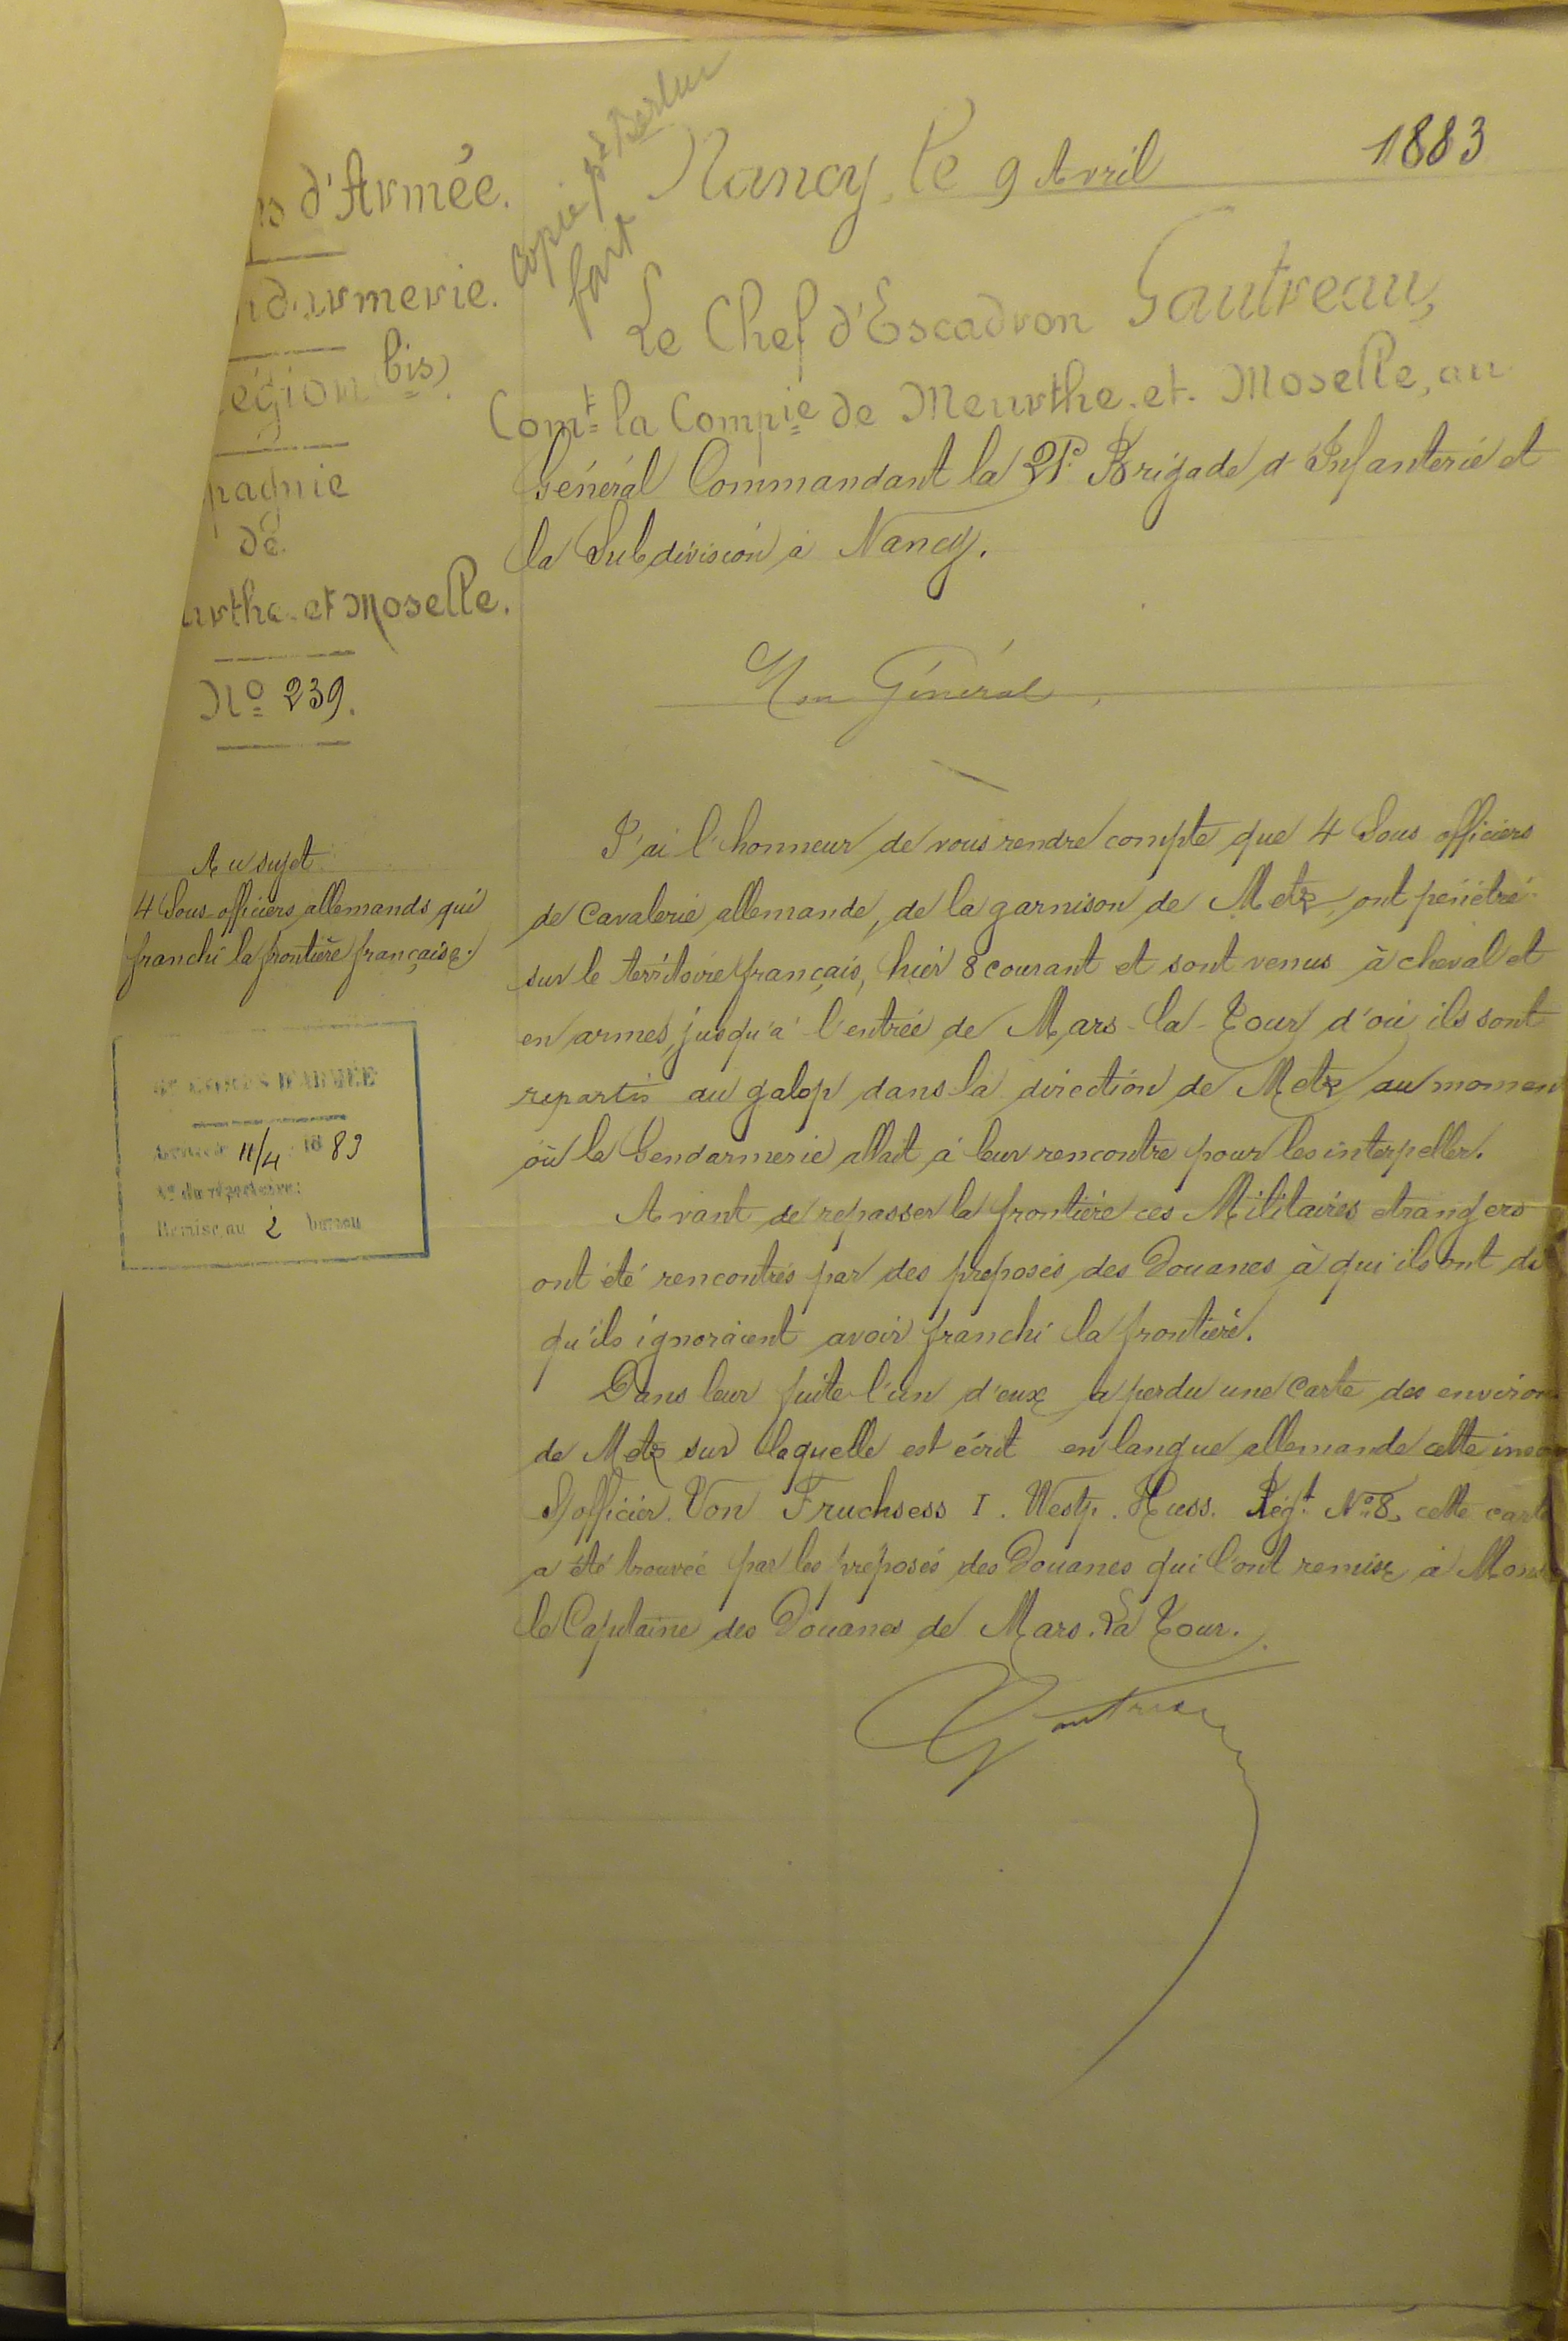 d'Armée.
bis)
de
et Moselle.
No 239.
Au sujet
4 Sous-officiers allemands qui
franchi la frontière française.
6e CORPS D'ARMÉE
Arrivée le 11/4 1883
No du répertoire:
Remise au 2 bureau
Copie pr Berlin
fait
Nancy, le 9 Avril 1883
Le Chef d'Escadron Gautreau,
Comt la Compie de Meurthe-et-Moselle, au
Général Commandant la 21e Brigade d'Infanterie et
la Subdivision à Nancy.
Mon Général,
J'ai l'honneur de vous rendre compte que 4 Sous officiers
de Cavalerie allemande, de la garnison de Metz, ont pénétré
sur le territoire français, hier 8 courant et sont venus à cheval et
en armes, jusqu'à l'entrée de Mars-la-Tour d'où ils sont
repartis au galop dans la direction de Metz au momen
où la Gendarmerie allait à leur rencontre pour les interpeller.
Avant de repasser la frontière ces Militaires etrangers
ont été rencontrés par des préposés des Douanes à qui ils ont di
qu'ils ignoraient avoir franchi la frontière.
Dans leur fuite l'un d'eux a perdu une Carte des environ
de Metz sur laquelle est écrit en langue allemande cette
S/officier. Von Fruchsess I. Westf. Huss. Régt No 8, cette carte
a été trouvée par les préposés des Douanes qui l'ont remise à
le Capitaine des Douanes de Mars. La Tour.
Gautreau